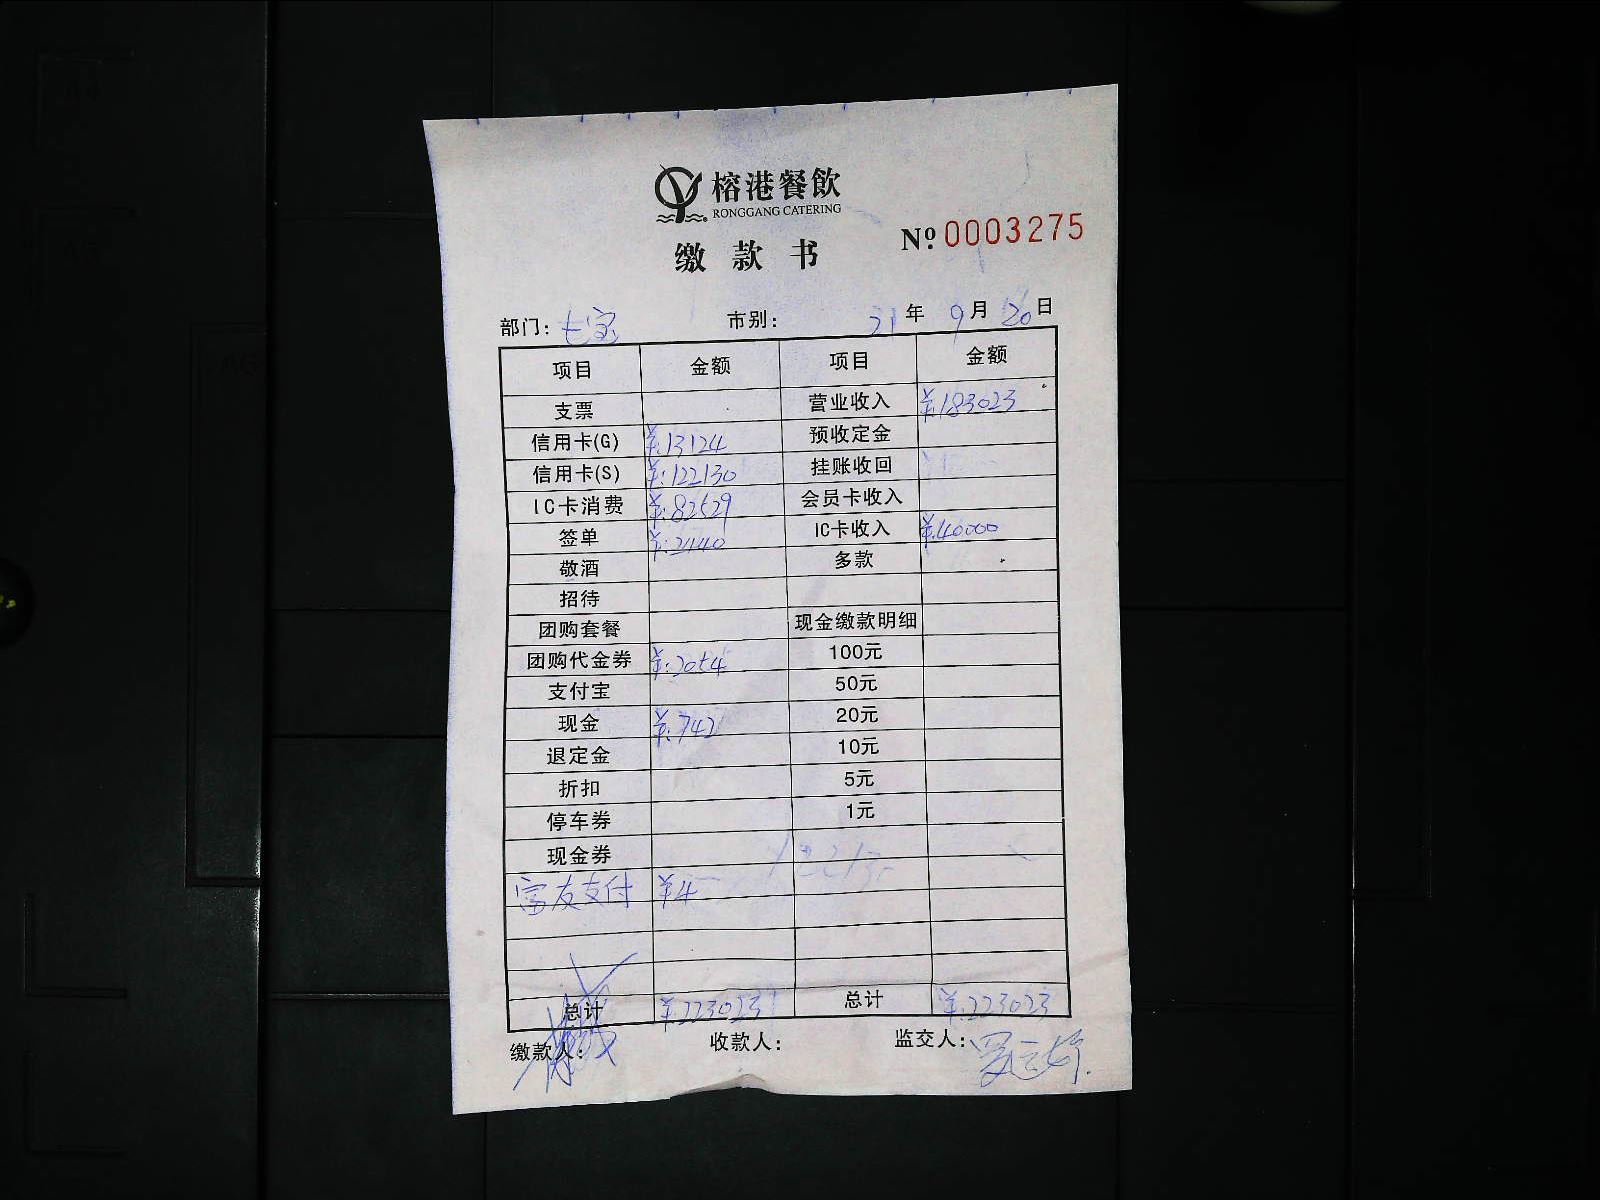 榕港餐飲
RONGGANG CATERING
缴款书
Nº 0003275
部门: 七宝 市别: 21 年 9 月 日
项目 金额 项目 金额
支票 营业收入 ¥:183023
信用卡(G) ¥:13124 预收定金
信用卡(S) ¥:122130 挂账收回
IC卡消费 ¥:82529 会员卡收入
签单 ¥:2440 IC卡收入 ¥:40000
敬酒 多款
招待
团购套餐 现金缴款明细
团购代金券 ¥:2054 100元
支付宝 50元
现金 ¥:742 20元
退定金 10元
折扣 5元
停车券 1元
现金券
富友支付 ¥4
总计 ¥:223023 总计 ¥:223023
缴款人: 收款人: 监交人: